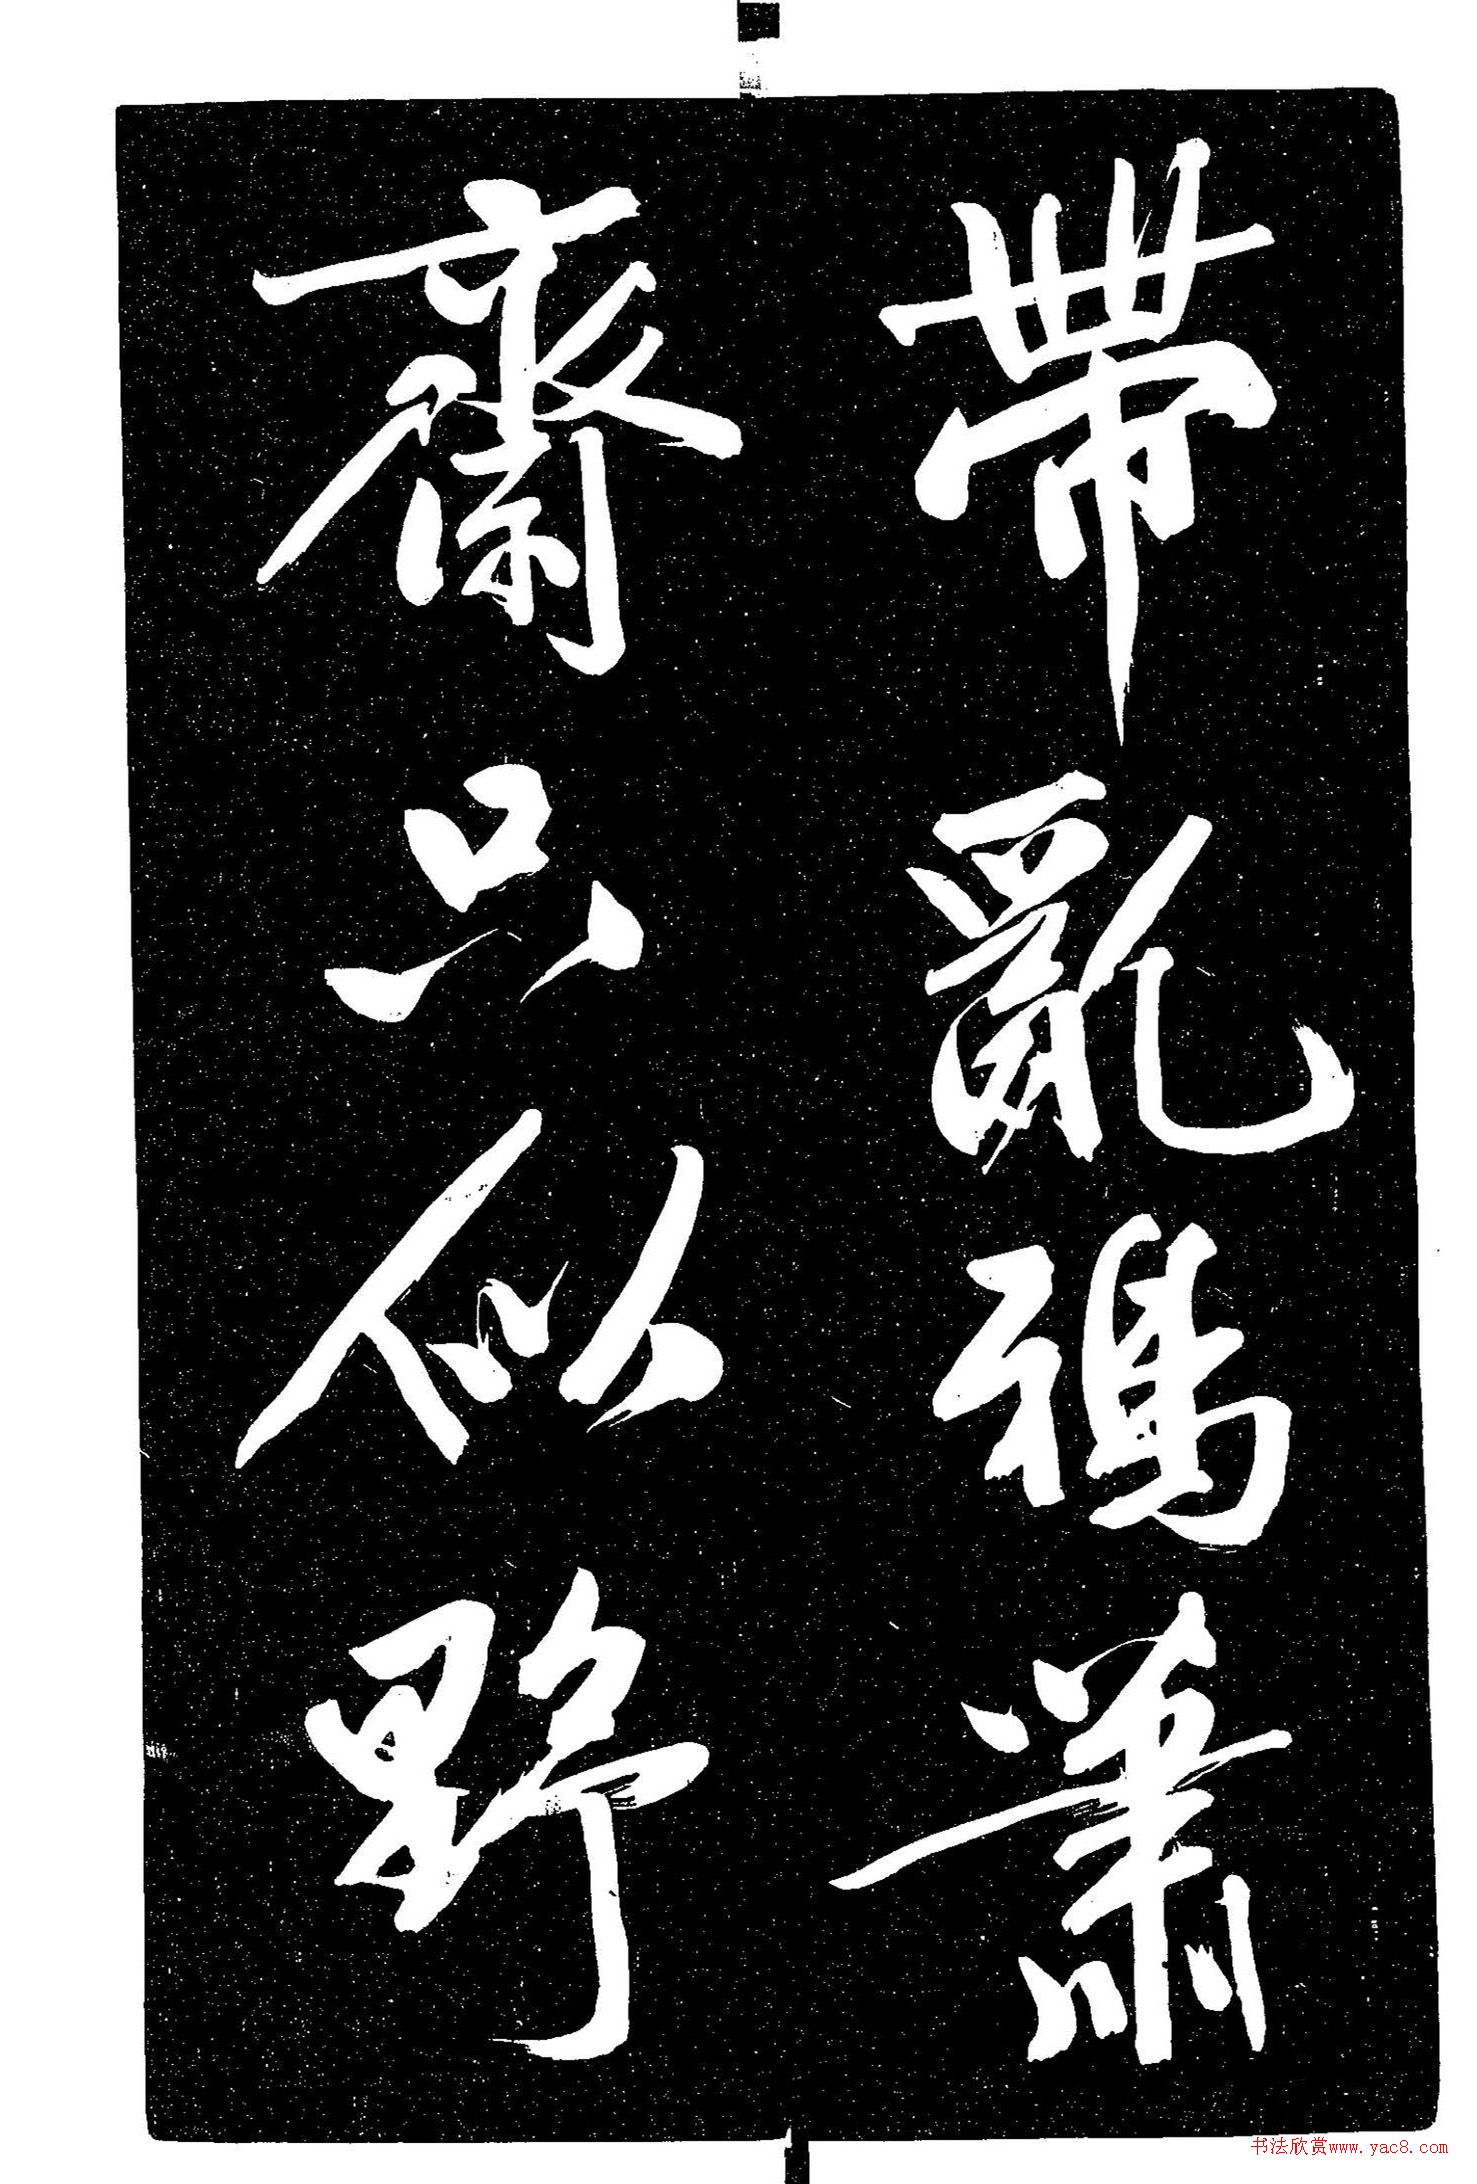 帶亂鴉蕭
齋只似野
书法欣赏www.yac8.com